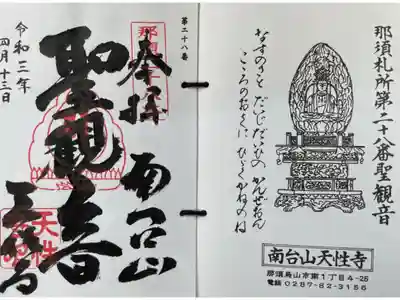 那須札所第二十八番聖観音
なすのさと だいじだいひの かんぜおん
こころのおくに ひびくかねのね
南台山天性寺
那須烏山市南1丁目4-25
第二十八番
奉拝
南台山
聖観音
天性寺
令和三年
四月十三日